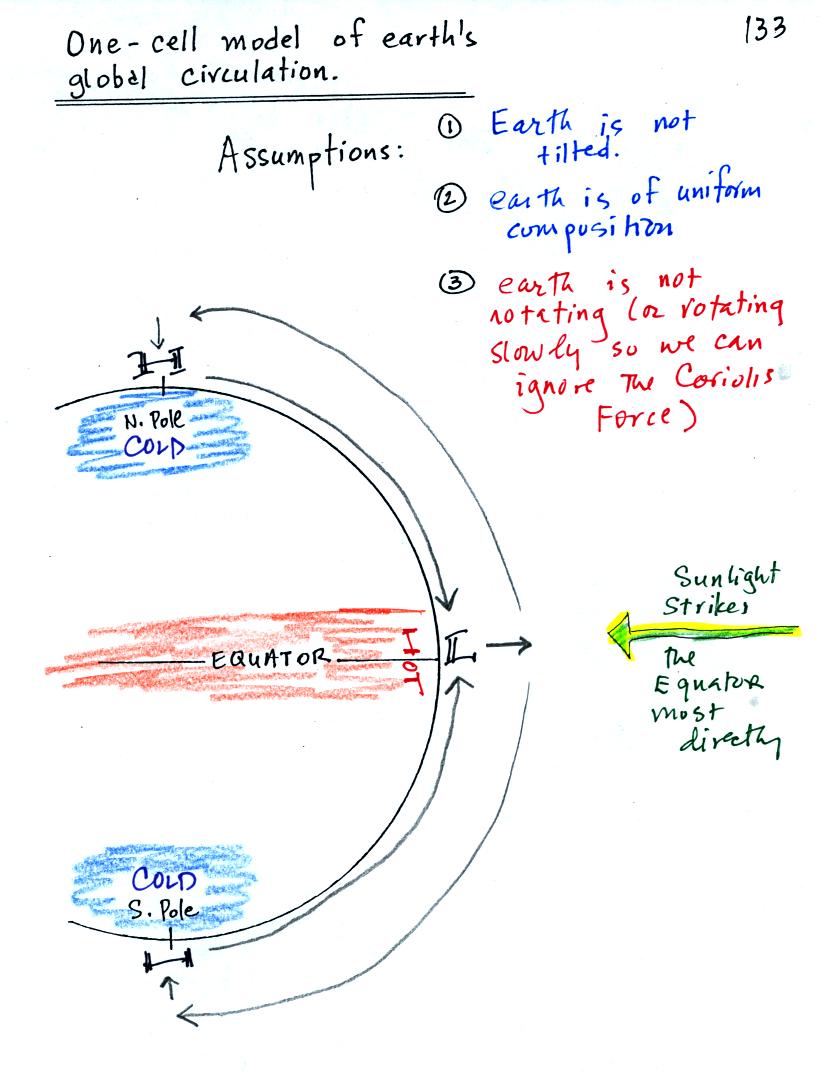 One-cell model of earth's
global circulation.
133
Assumptions:
① Earth is not
tilted.
② earth is of uniform
composition
③ earth is not
rotating (or rotating
slowly so we can
ignore The Coriolis
Force)
H
N. Pole
COLD
EQUATOR
HOT
L
Sunlight
Strikes
the
Equator
most
directly
COLD
S. Pole
H